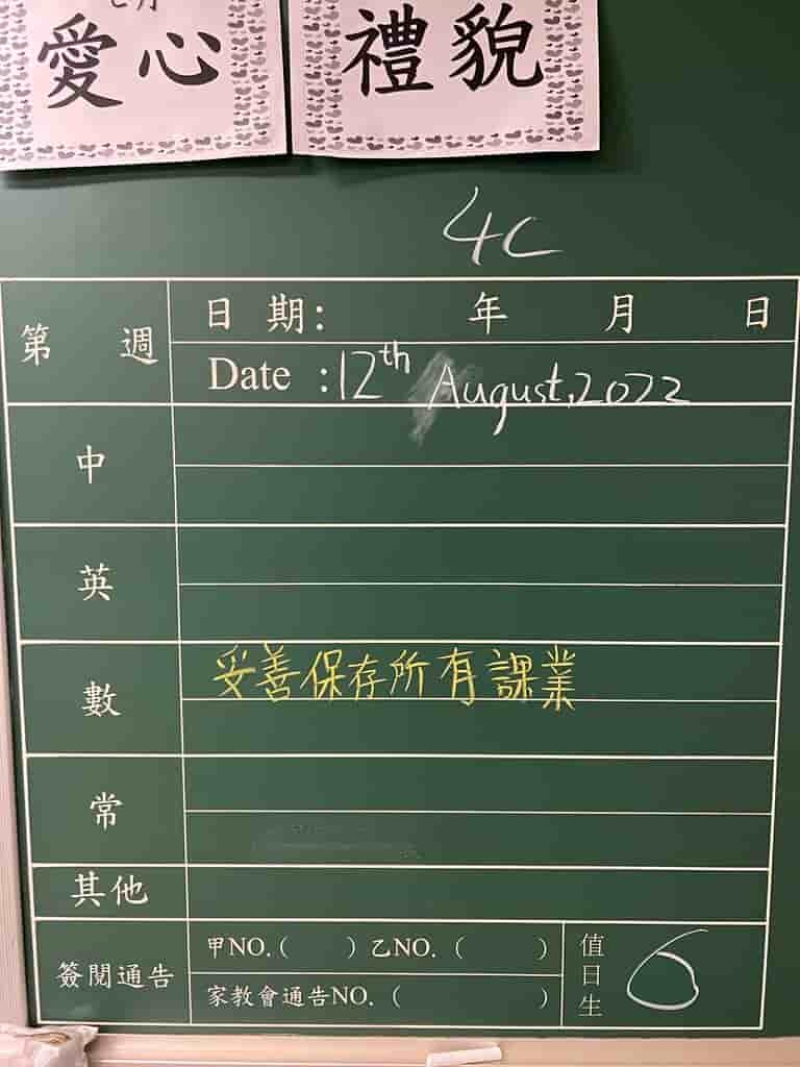 七月
愛心
禮貌
4C
第 週
日 期: 年 月 日
Date :12th August, 2022
中
英
數
妥善保存所有課業
常
其他
簽閱通告
甲NO.( ) 乙NO. ( )
家教會通告NO. ( )
值日生
6